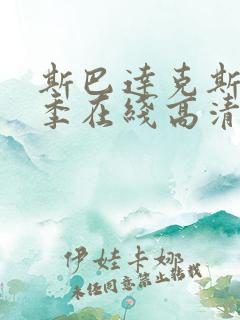 斯巴達克斯
季在綫高清
伊娃卡娜
未经同意禁止转载